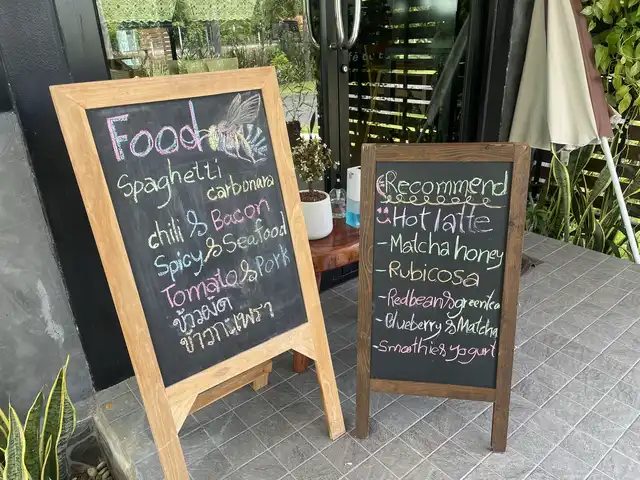 Food
Spaghetti
carbonara
chili & Bacon
Spicy & Seafood
Tomato & Pork
ข้าวผัด
ข้าวกะเพรา
Recommend
Hot latte
-Matcha honey
-Rubicosa
-Redbean & greentea
-Blueberry & Matcha
-Smoothie & yogurt